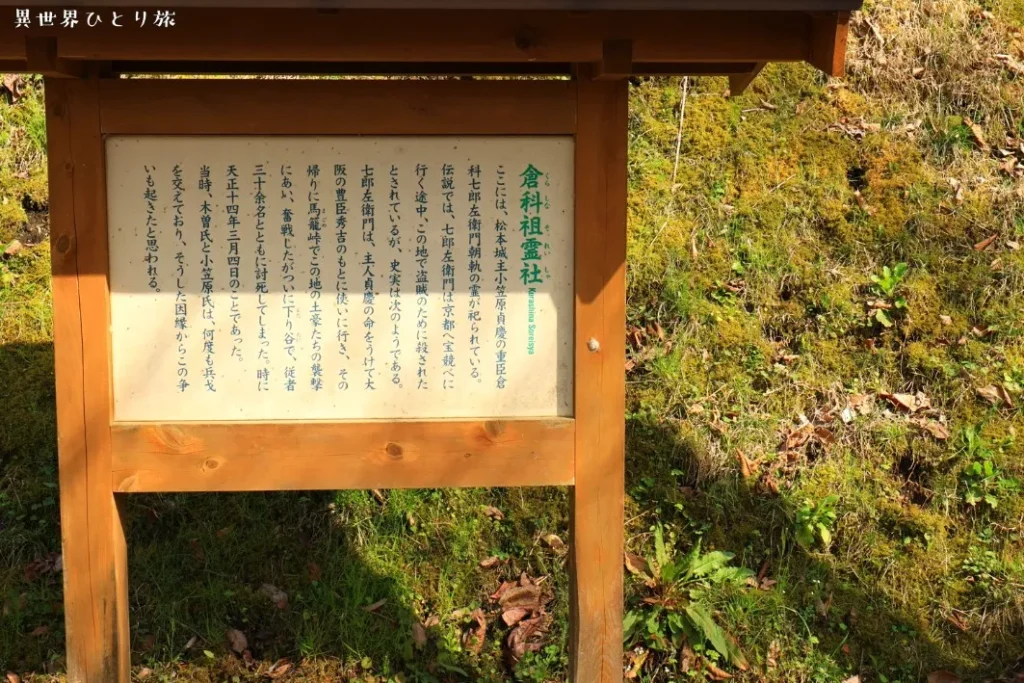 異世界ひとり旅
倉科祖霊社 Kurashina Soreisya
くら しな それい しゃ
ここには、松本城主小笠原貞慶の重臣倉
科七郎左衛門朝軌の霊が祀られている。
伝説では、七郎左衛門は京都へ宝競べに
行く途中、この地で盗賊のために殺された
とされているが、史実は次のようである。
七郎左衛門は、主人貞慶の命をうけて大
阪の豊臣秀吉のもとに使いに行き、その
帰りに馬籠峠でこの地の土豪たちの襲撃
まごめ
にあい、奮戦したがついに下り谷で、従者
三十余名とともに討死してしまった。時に
天正十四年三月四日のことであった。
当時、木曽氏と小笠原氏は、何度も兵戈
を交えており、そうした因縁からこの争
いも起きたと思われる。